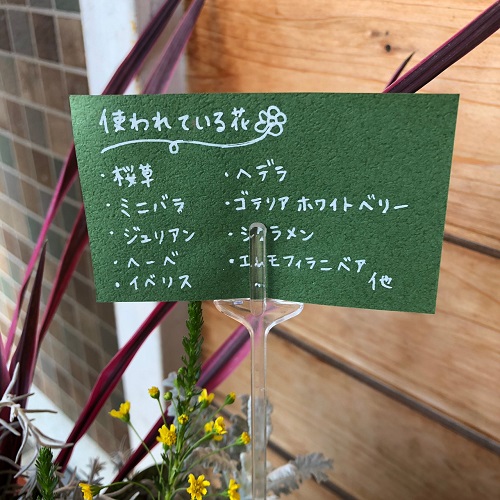 使われている花
・桜草
・ミニバラ
・ジュリアン
・ヘーベ
・イベリス
・ヘデラ
・ゴテリア ホワイトベリー
・シクラメン
・エレモフィラニベア
～ 他